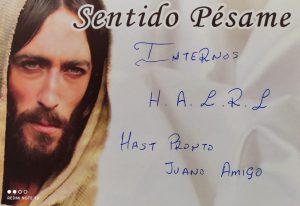 Sentido Pésame
INTERNOS
H.A.L.R.L
HAST PRONTO
JUANO AMIGO
REDMI NOTE